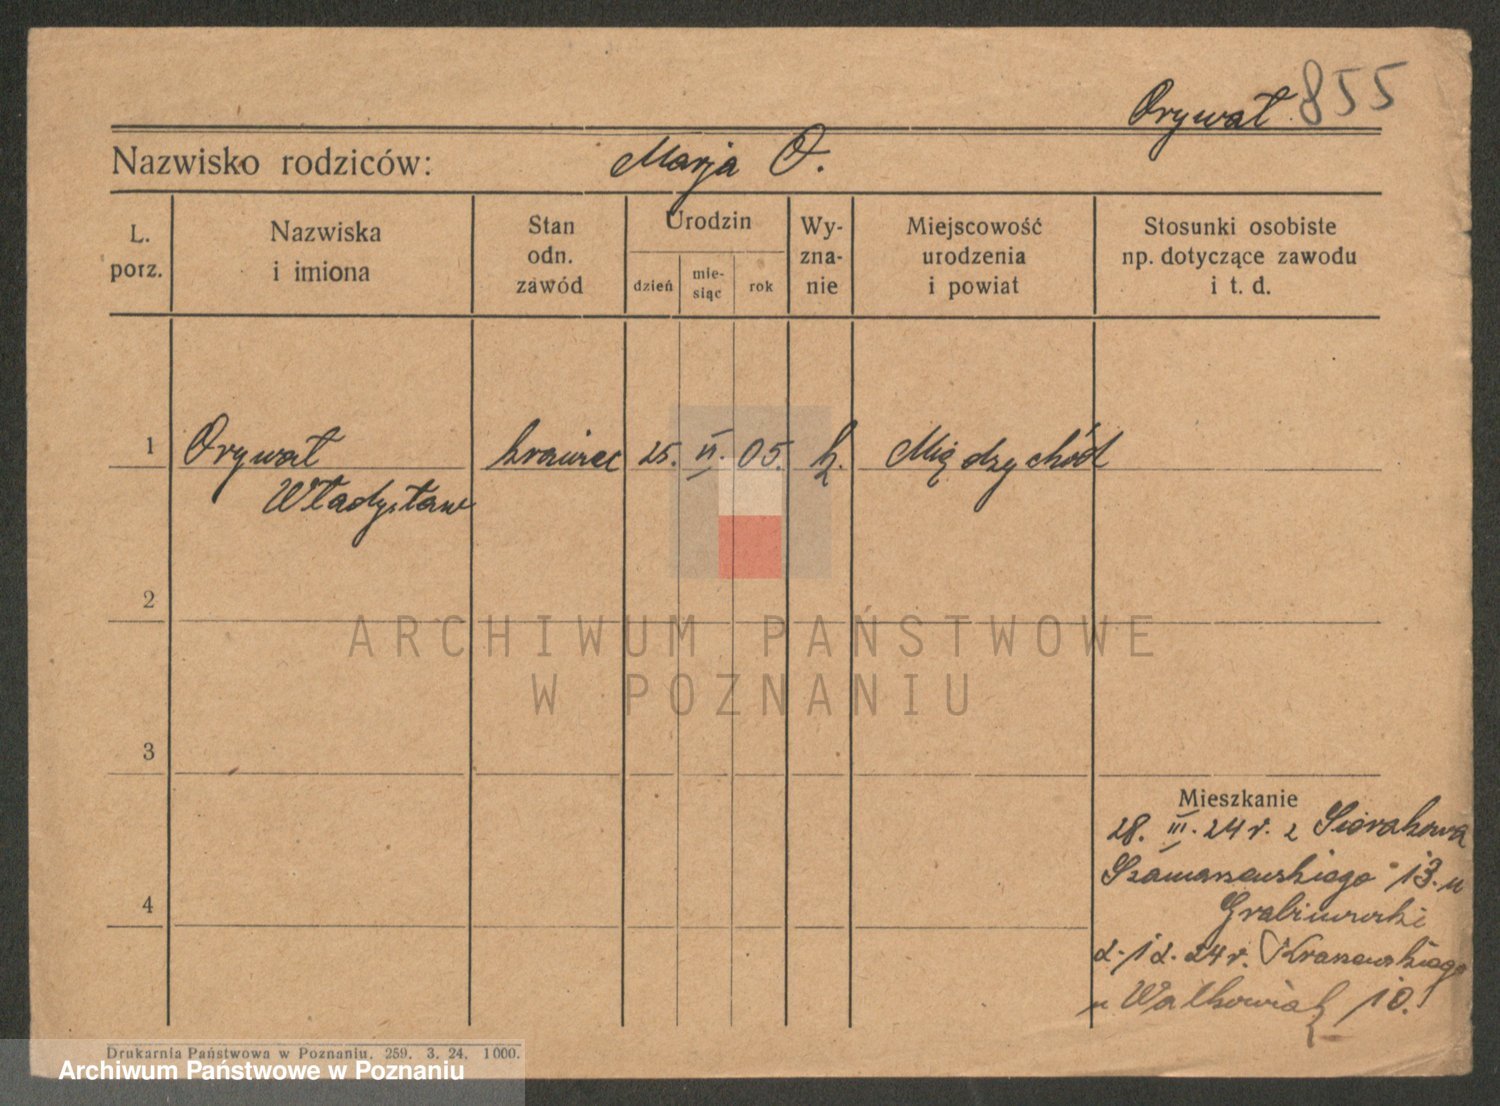 Orywał 855
Nazwisko rodziców: Marja O.
L. porz.
Nazwiska i imiona
Stan odn. zawód
Urodzin
dzień
mie-siąc
rok
Wy-zna-nie
Miejscowość urodzenia i powiat
Stosunki osobiste np. dotyczące zawodu i t. d.
1 Orywał krawiec 25. II. 05. k. Międzychód
Władysław
2
ARCHIWUM PAŃSTWOWE
W POZNANIU
3
Mieszkanie
28. III. 24 r. z Sierakowa
Szamarzewskiego 13. u
4
Grabiewski
2. 12. 24 r. Kraszewskiego
u Walkowiak 10.
Drukarnia Państwowa w Poznaniu. 259. 3. 24. 1000.
Archiwum Państwowe w Poznaniu